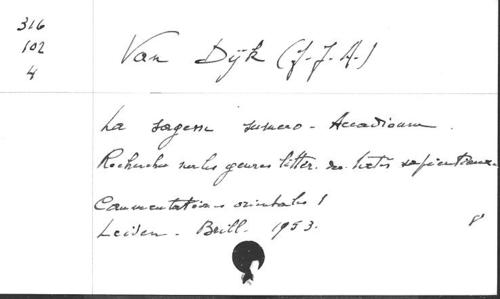 316
102
4
Van Dijk (J. J. A.)
La sagesse sumero-Accadienne.
Recherches sur les genres litter. des textes sapientiaux.
Commentationes orientales 1
Leiden. Brill. 1953. 8°